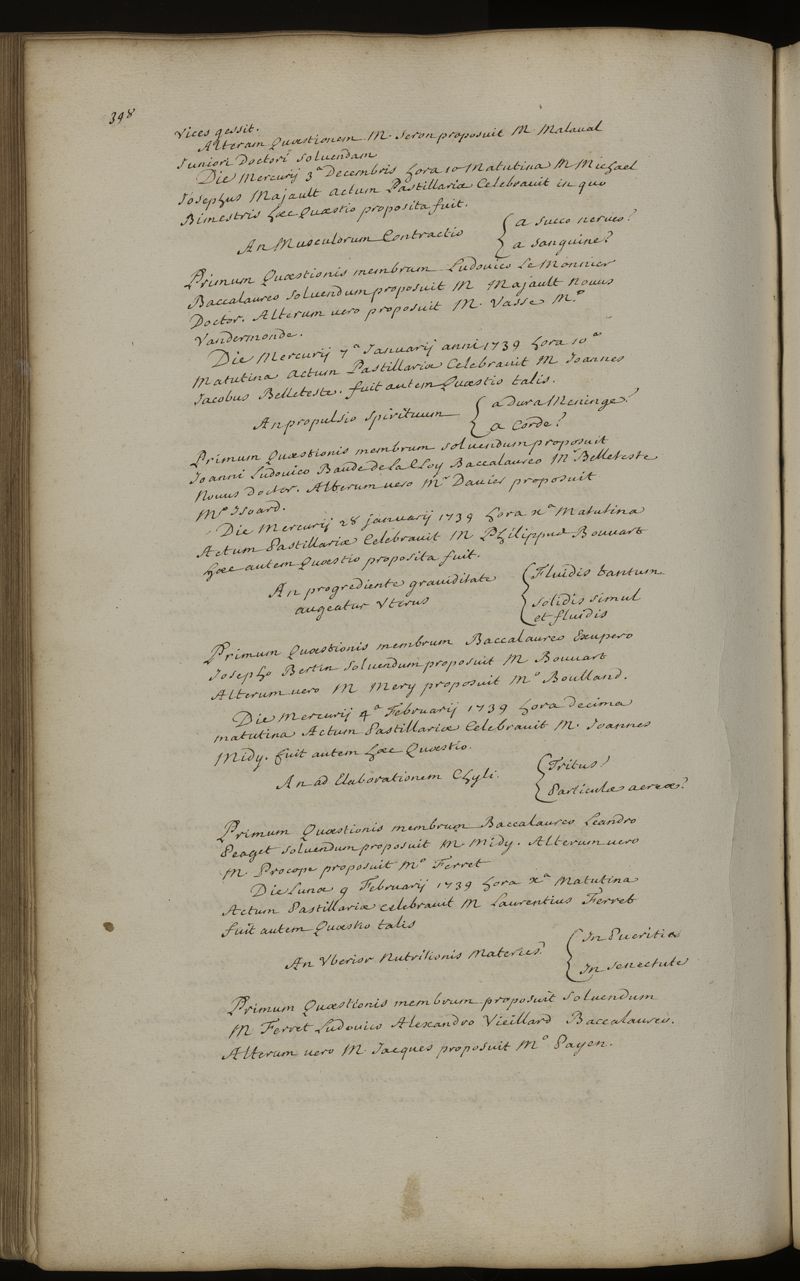 398
Vices gessit.
Alteram Quæstionem M. Seron proposuit M. Malaval
Juniori Doctori Solvendam
Die Mercurij 3ª Decembris hora 10 Matutina M Michael
Josephus Majault actum Pastillariæ Celebrauit in quo
Bimestris hæc Quæstio proposita fuit.
An Musculorum Contractio { a succo nerveo?
a sanguine?
Primum Quæstionis membrum Ludouico Le Monnier
Baccalaureo Soluendum proposuit M Majault Nouus
Doctor. Alterum uero proposuit M. Vasse M.º
Vandermonde.
Die Mercurij 7ª Januarij anni 1739 hora 10ª
Matutina actum Pastillariæ Celebrauit M Joannes
Jacobus Belleteste. fuit autem Quæstio talis.
An propulsio Spirituum { a Dura Meninge?
a Corde?
Primum Quæstionis membrum soluendum proposuit
Joanni Ludouico Baude de la Cloy Baccalaureo Mr Belleteste
Nouus Doctor. Alterum uero Mr Davier proposuit
Mº Isoard.
Die Mercurij 28 januarij 1739 hora xª Matutina
Actum Pastillariæ Celebrauit M Philippus Bouuart
hæc autem Quæstio proposita fuit.
An progrediente grauiditate { Fluidis tantum
augeatur Vterus
solidis simul
et fluidis
Primum Quæstionis membrum Baccalaureo Exupero
Josepho Bertin Soluendum proposuit M Bouuart
Alterum uero M Mery proposuit Mº Boulland.
Die Mercurij 4ª Februarij 1739 hora decima
matutina Actum Pastillariæ Celebrauit M. Joannes
Midy. fuit autem hæc Quæstio.
An ad Elaborationem Chyli. { Tritus?
Particulæ aereæ?
Primum Quæstionis membrum Baccalaureo Leandro
Peaget Soluendum proposuit M. Midy. Alterum uero
M. Procope proposuit Mº Ferret
Die Lunæ 9 Februarij 1739 hora xª Matutina
Actum Pastillariæ celebrauit M Laurentius Ferret
fuit autem Quæstio talis
An Vberior Nutritionis Materies? { In Pueritia
In senectute
Primum Quæstionis membrum proposuit Soluendum
M Ferret Ludouico Alexandro Vieillard Baccalaureo.
Alterum uero M Jacques proposuit Mº Payen.